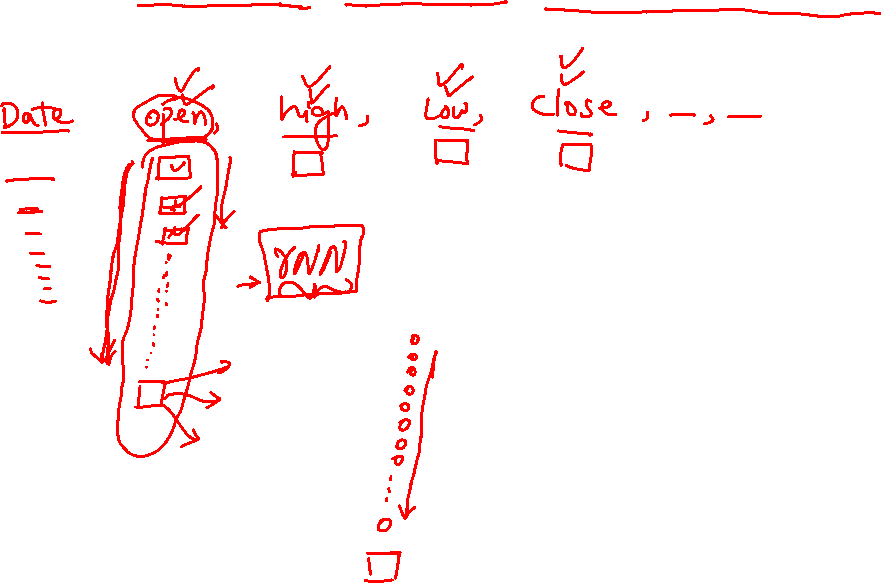 Date open, high, Low, close, —, —
rNN